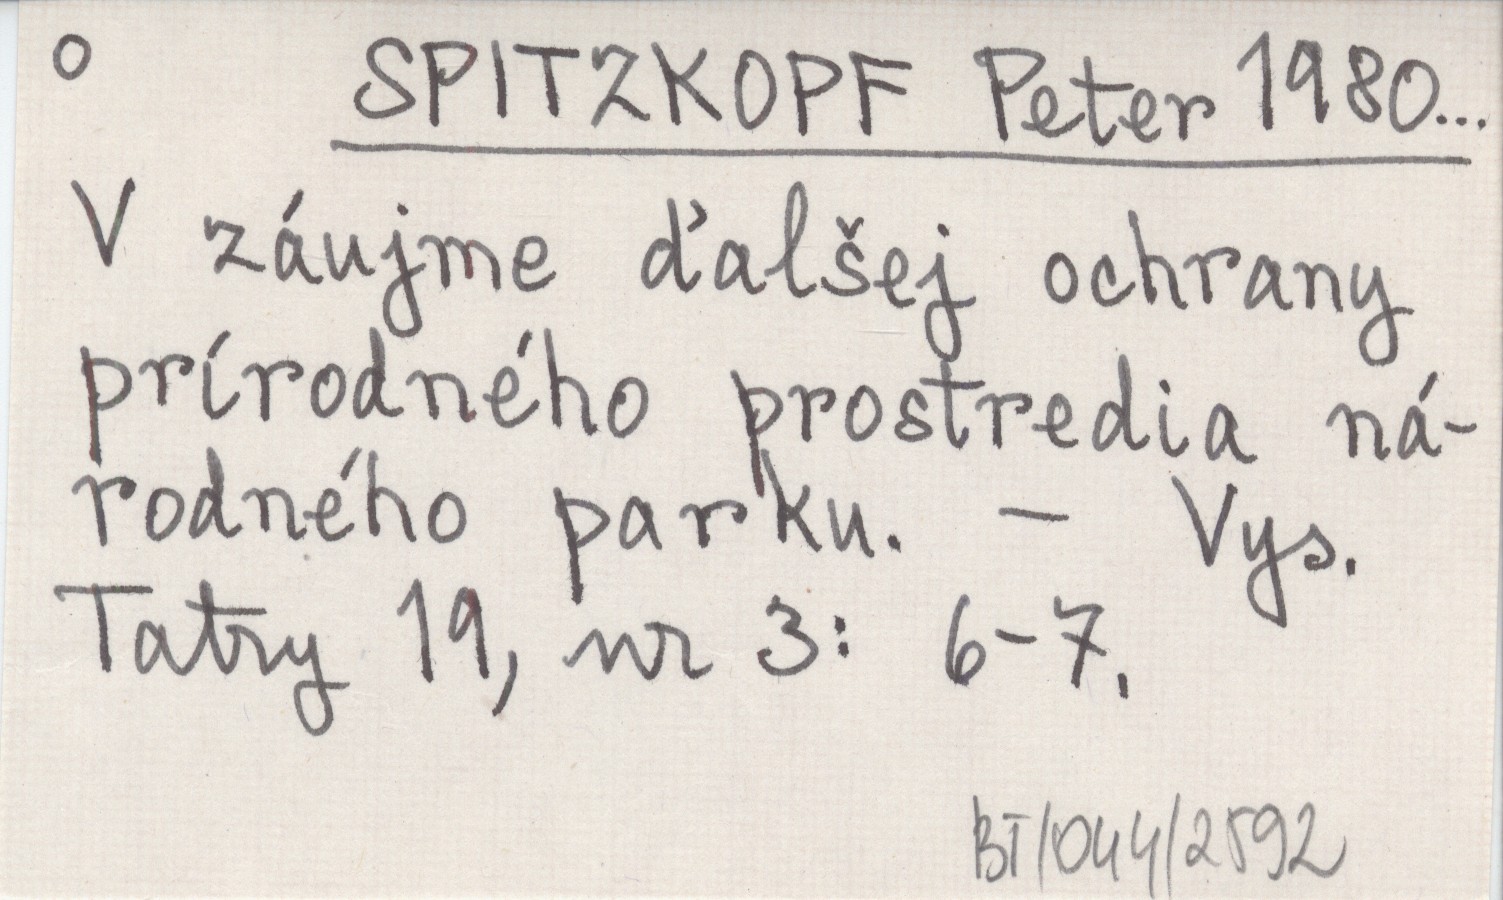 o SPITZKOPF Peter 1980...
V záujme ďalšej ochrany
prírodného prostredia ná-
rodného parku. - Vys.
Tatry 19, nr 3: 6-7.
BT/044/2592